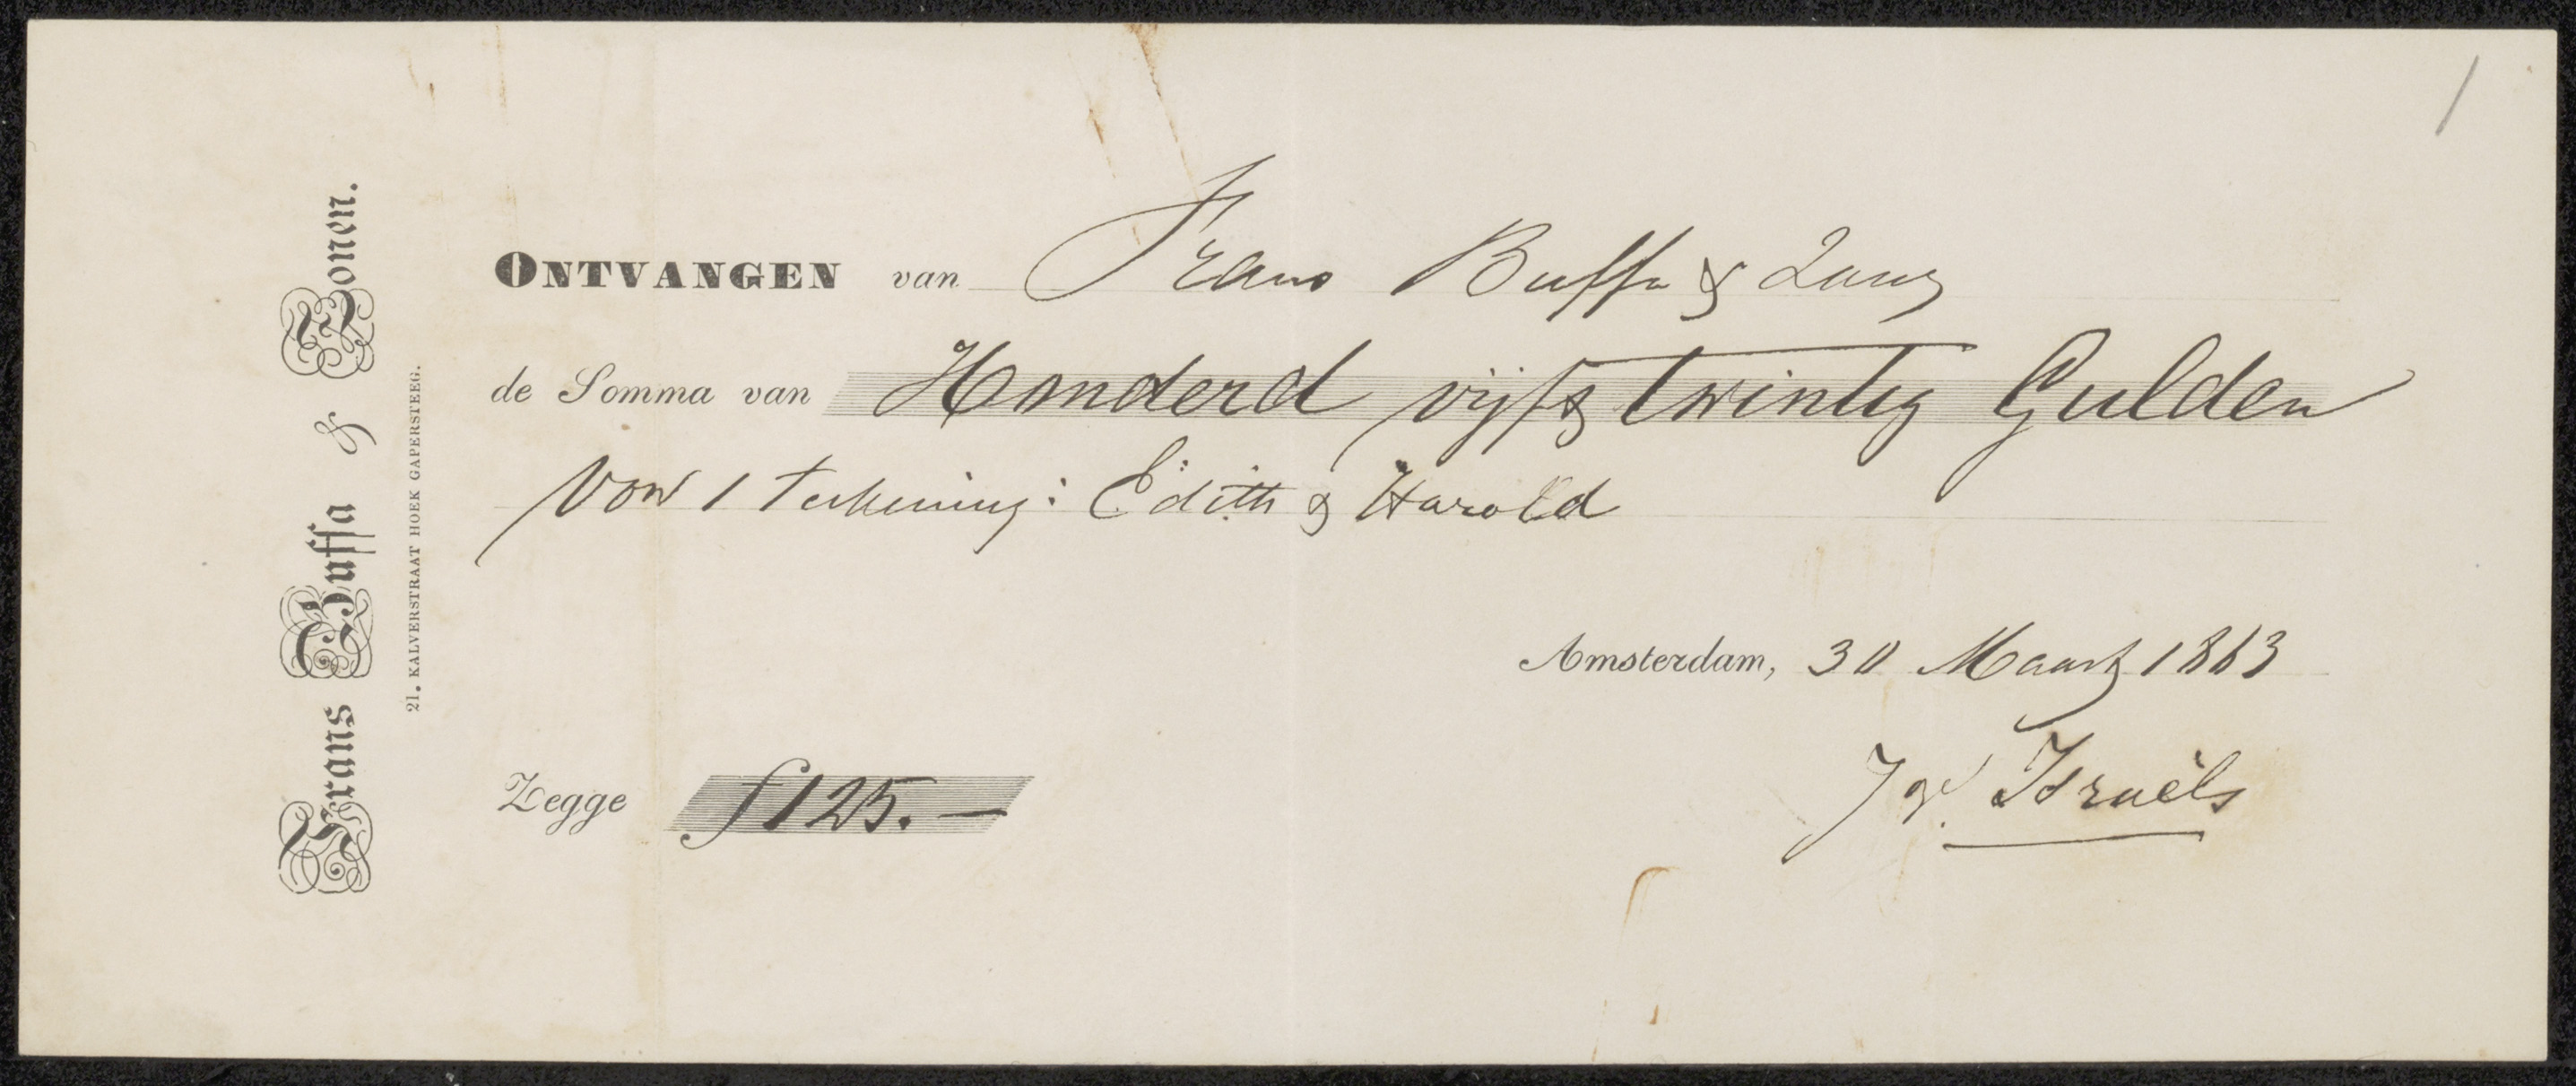 Frans Buffa & Zonen.
21. KALVERSTRAAT HOEK GAPERSTEEG.
ONTVANGEN van Frans Buffa & Zonen
de Somma van Honderd vijf & twintig Gulden
Voor 1 teekening: Edith & Harold
Amsterdam, 30 Maart 1863
Jos. Israëls
Zegge f 125.—